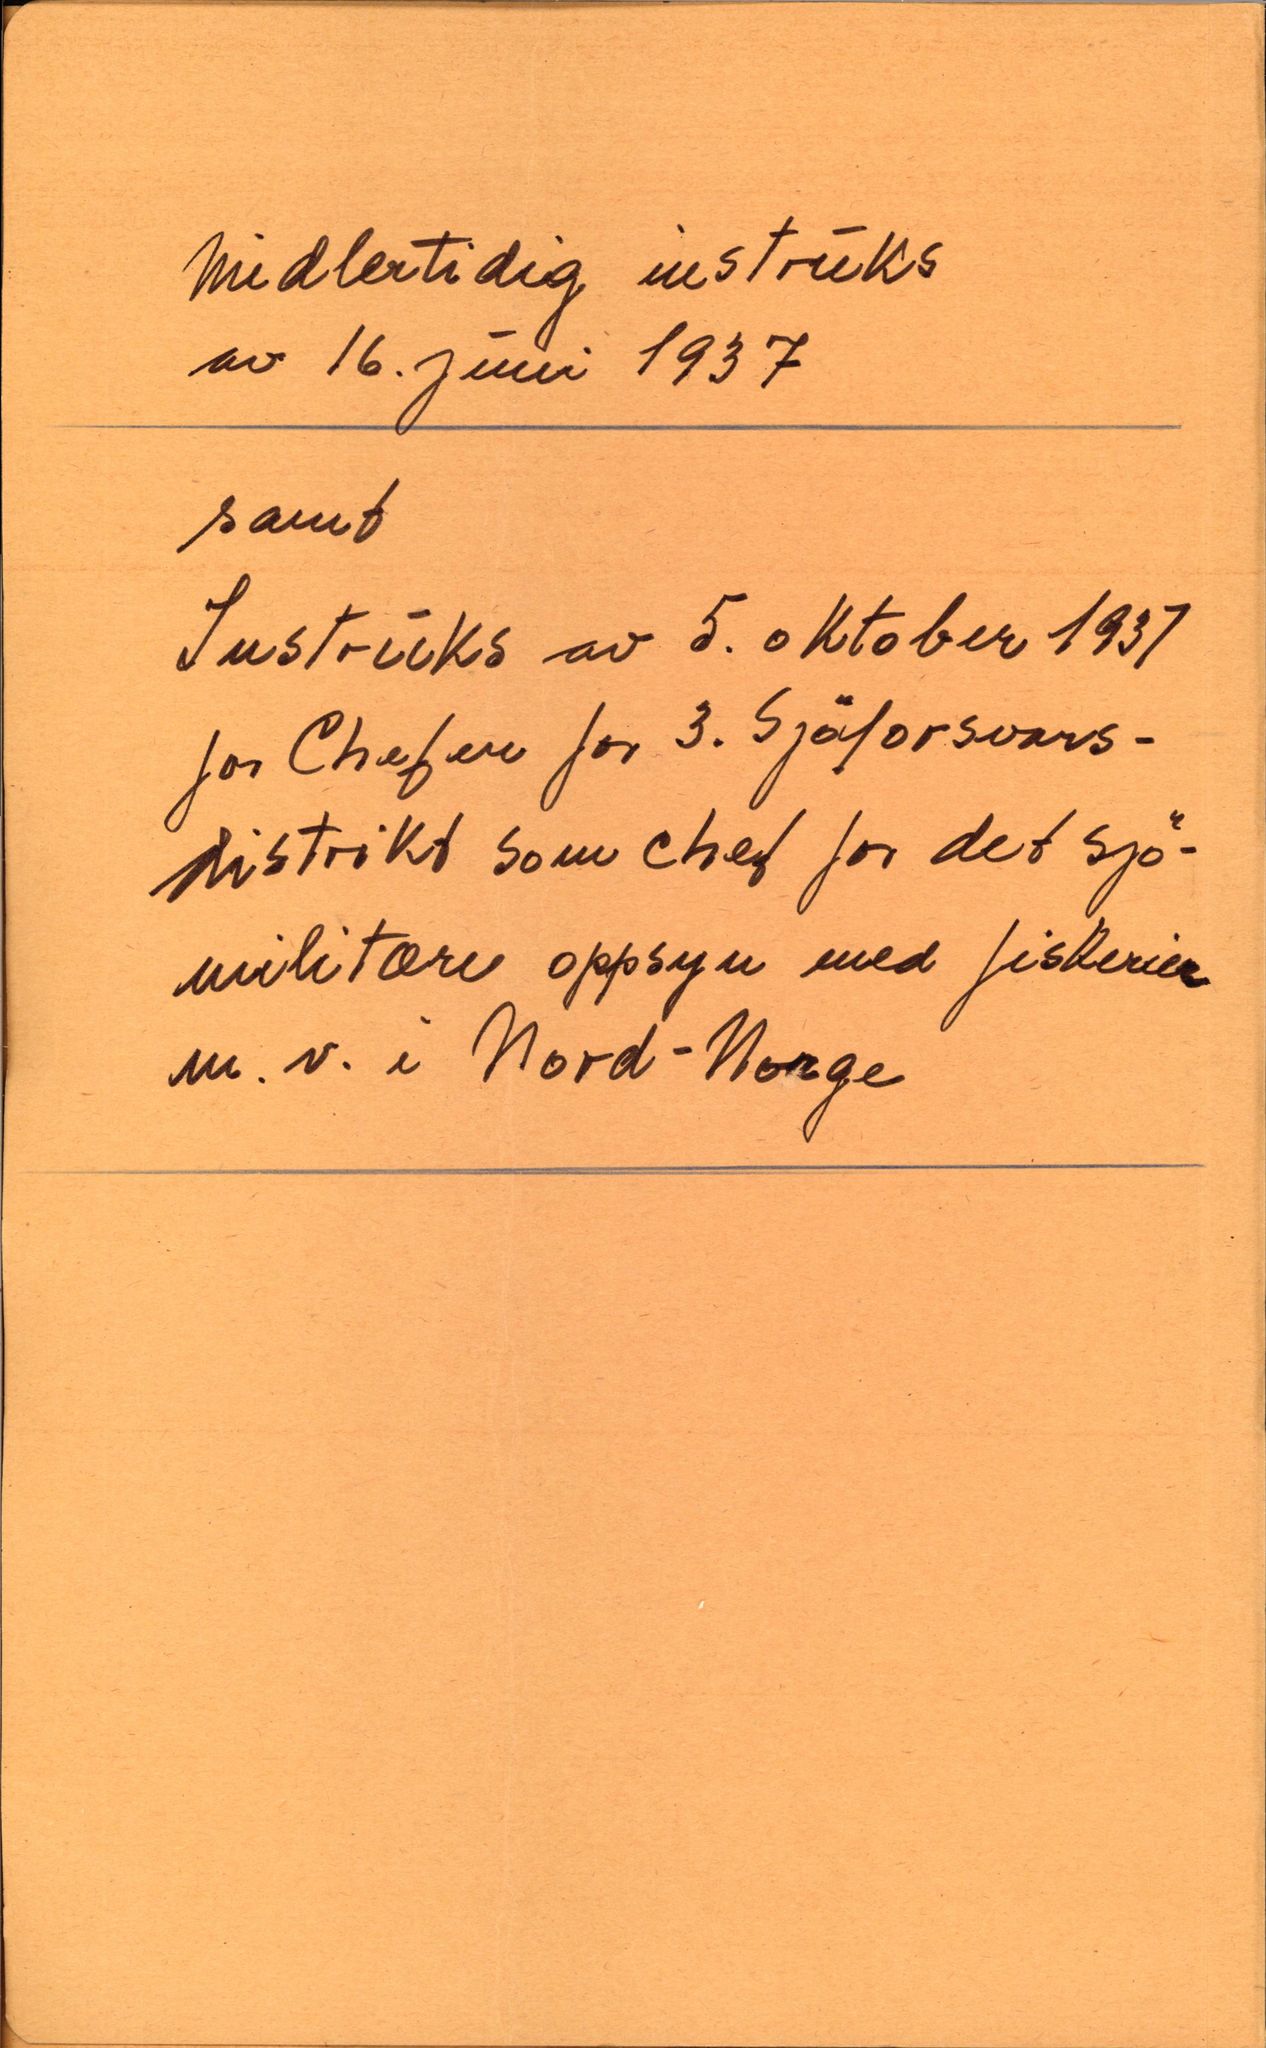 Midlertidig instruks
av 16. juni 1937
samt
Instruks av 5. oktober 1937
for Chefen for 3. Sjöforsvars-
distrikt som chef for det sjö-
militære oppsyn med fiskerier
m. v. i Nord-Norge